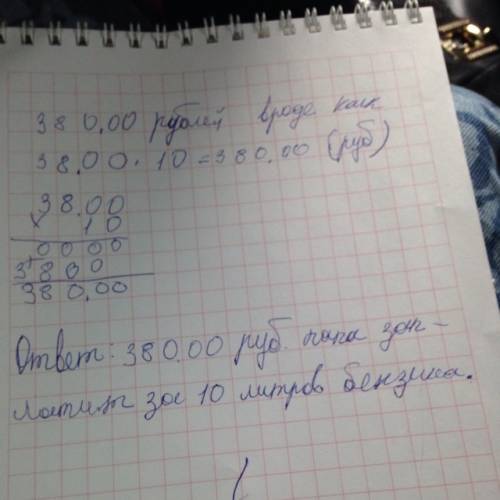 380,00 рублей вроде как
38,00 · 10 = 380,00 (руб)
38,00
× 10
0000
+
3800
380,00
Ответ: 380,00 руб. папа зап-
латит за 10 литров бензина.